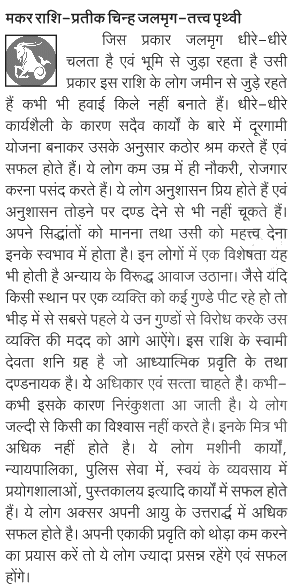 मकर राशि-प्रतीक चिन्ह जलमृग-तत्त्व पृथ्वी
जिस प्रकार जलमृग धीरे-धीरे
चलता है एवं भूमि से जुड़ा रहता है उसी
प्रकार इस राशि के लोग जमीन से जुड़े रहते
हैं कभी भी हवाई किले नहीं बनाते हैं। धीरे-धीरे
कार्यशैली के कारण सदैव कार्यों के बारे में दूरगामी
योजना बनाकर उसके अनुसार कठोर श्रम करते हैं एवं
सफल होते हैं। ये लोग कम उम्र में ही नौकरी, रोजगार
करना पसंद करते हैं। ये लोग अनुशासन प्रिय होते हैं एवं
अनुशासन तोड़ने पर दण्ड देने से भी नहीं चूकते हैं।
अपने सिद्धांतों को मानना तथा उसी को महत्त्व देना
इनके स्वभाव में होता है। इन लोगों में एक विशेषता यह
भी होती है अन्याय के विरूद्ध आवाज उठाना। जैसे यदि
किसी स्थान पर एक व्यक्ति को कई गुण्डे पीट रहे हो तो
भीड़ में से सबसे पहले ये उन गुण्डों से विरोध करके उस
व्यक्ति की मदद को आगे आऐंगे। इस राशि के स्वामी
देवता शनि ग्रह है जो आध्यात्मिक प्रवृति के तथा
दण्डनायक है। ये अधिकार एवं सत्ता चाहते है। कभी-
कभी इसके कारण निरंकुशता आ जाती है। ये लोग
जल्दी से किसी का विश्वास नहीं करते है। इनके मित्र भी
अधिक नहीं होते है। ये लोग मशीनी कार्यों,
न्यायपालिका, पुलिस सेवा में, स्वयं के व्यवसाय में
प्रयोगशालाओं, पुस्तकालय इत्यादि कार्यों में सफल होते
हैं। ये लोग अक्सर अपनी आयु के उत्तरार्द्ध में अधिक
सफल होते है। अपनी एकाकी प्रवृति को थोड़ा कम करने
का प्रयास करें तो ये लोग ज्यादा प्रसन्न रहेंगे एवं सफल
होंगे।